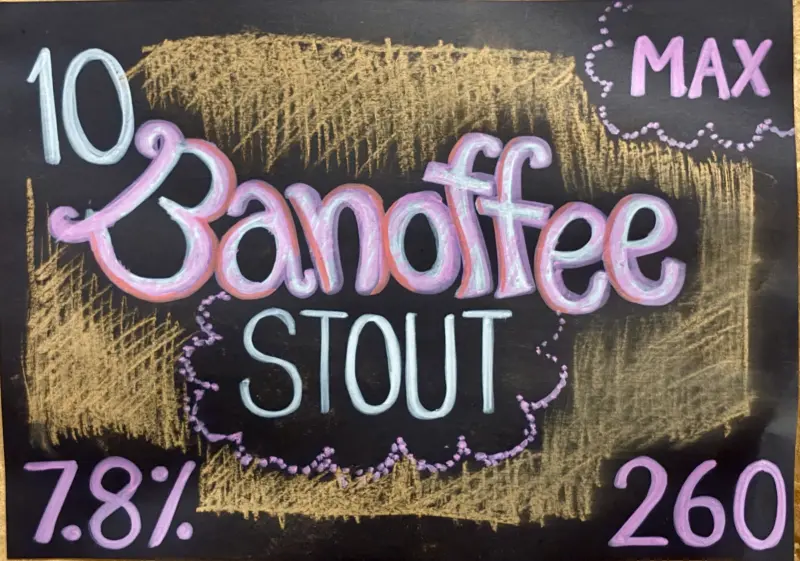 10
MAX
Banoffee
STOUT
7.8%
260